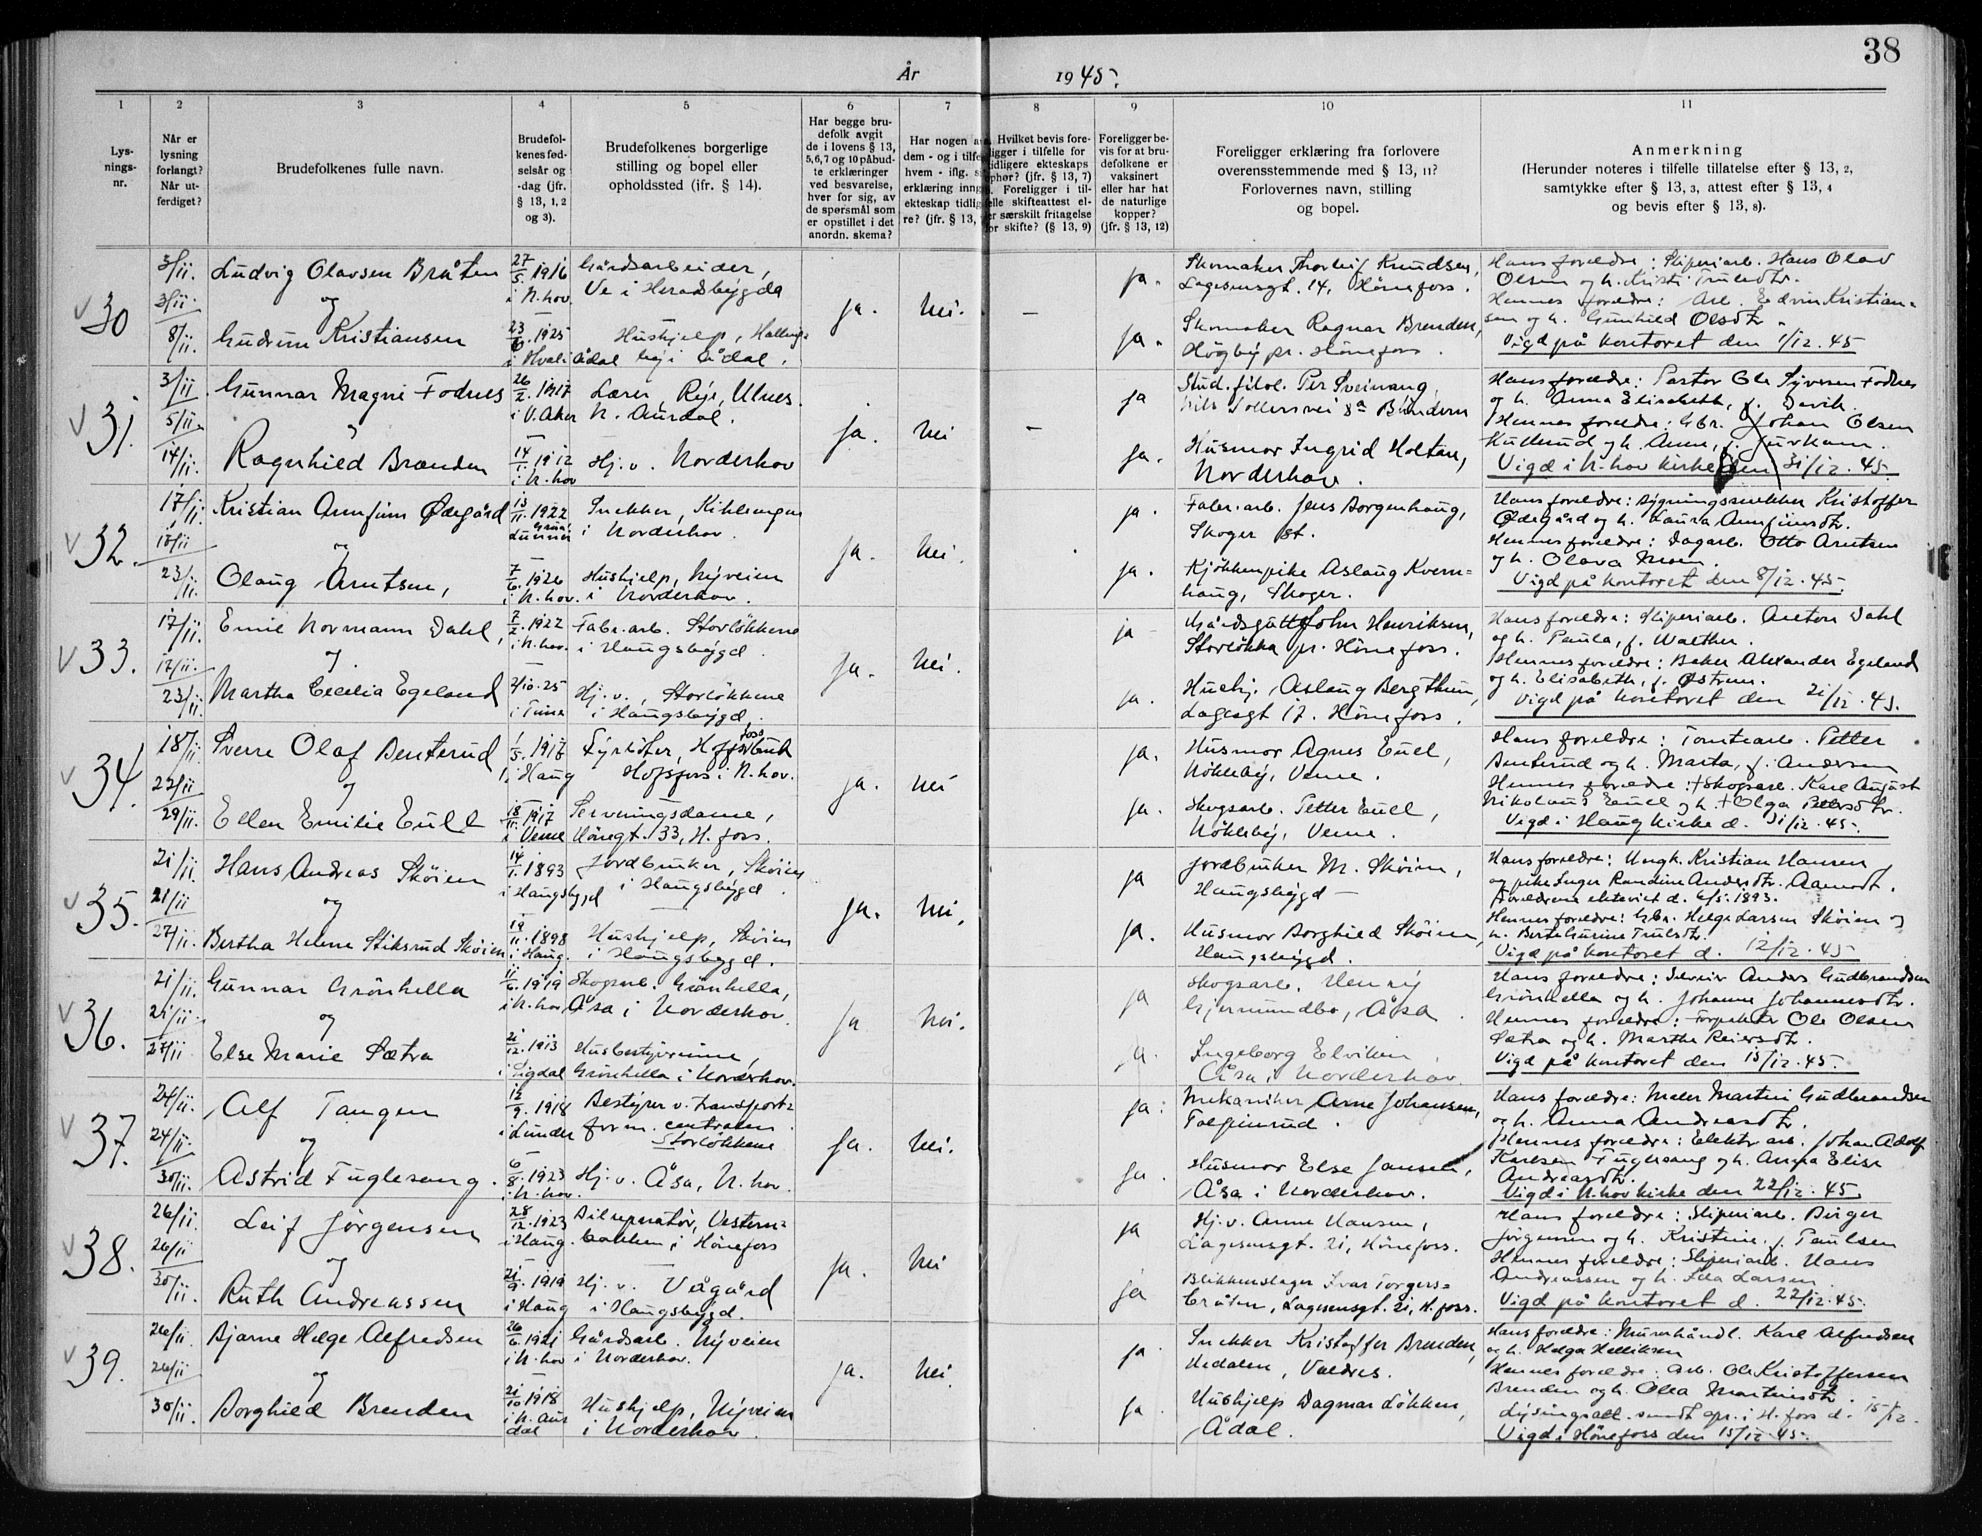 38
År 1945.
1 2 3 4 5 6 7 8 9 10 11
Lys-
nings-
nr.
Når er
lysning
forlangt?
Når ut-
ferdiget?
Brudefolkenes fulle navn.
Brudefol-
kenes fød-
selsår og
-dag (jfr.
§ 13, 1, 2
og 3).
Brudefolkenes borgerlige
stilling og bopel eller
opholdssted (ifr. § 14).
Har begge bru-
defolk avgit
de i lovens § 13,
5,6,7 og 10 påbud-
te erklæringer
ved besvarelse,
hver for sig, av
de spørsmål som
er opstillet i det
anordn. skema?
Har nogen a
dem - og i tilfe
hvem - iflg. s
erklæring inng
ekteskap tidlig
re? (jfr. § 13,
Hvilket bevis fore-
ligger i tilfelle for
tidligere ekteskaps
ophør? (jfr. § 13, 7)
Foreligger i til-
felle skifteattest el-
er særskilt fritagelse
for skifte? (§ 13, 9)
Foreligger be-
vis for at bru-
defolkene er
vaksinert
eller har hat
de naturlige
kopper?
(jfr. § 13, 12)
Foreligger erklæring fra forlovere
overensstemmende med § 13, 11?
Forlovernes navn, stilling
og bopel.
Anmerkning
(Herunder noteres i tilfelle tillatelse efter § 13, 2,
samtykke efter § 13, 3, attest efter § 13, 4
og bevis efter § 13, 8).
30
3/11.
3/11.
8/11.
Ludvig Olavsen Bråten
og
Gudrun Kristiansen
27/5. 1916
i N.hov.
23/6. 1925
i Hval
Gårdsarbeider,
Ve i Heradsbygda
Hushjelp,
ådal i Ådal.
Ja.
Nei.
–
ja.
ja.
Skomaker Thorleif Knudsen,
Lagesensgt. 14, Hönefoss.
Skomaker Ragnar Brenden,
Högby pr. Hönefoss.
Hans foreldre: Sliperiarb. Hans Olav
Olsen og h. Kristi Trulsdtr.
Hennes foreldre: Arb. Edvin Kristian-
sen og h. Gunhild Olsdtr.
Vigd på kontoret den 1/12.45
31.
3/11
5/11.
14/11.
Gunnar Magne Fodnes
og
Ragnhild Brænden
26/2. 1917
i V. Aker
14/1. 1912
i N.hov
Lærer, Ulnes.
N. Aurdal.
Hj. v. Norderhov
Ja.
Nei
–
ja
ja.
Stud. filol. Per Sveinaug,
Nils Tollersvei 8a Bündern
Husmor Ingrid Holtan,
Norderhov.
Hans foreldre: Pastor Ole Syversen Fodnes
og h. Anna Elisabeth, f. Devik.
Hennes foreldre: Gbr. Johan Olsen
Kullerud og h. Anne, f.
Vigd i N.hov kirke den 31/12.45
32.
17/11.
18/11
23/11
Kristian Arnfinn Ødegård
og
Olaug Arntsen,
13/11. 1922
Gran
Lunner
7/6. 1926
i N.hov.
Snekker,
i Norderhov.
Hushjelp, Nyveien
i Norderhov.
Ja.
Nei.
ja.
ja.
Fabr.arb. Jens Borgenhaug,
Skoger st.
Kjökkenpike Aslaug Kvern-
haug, Skoger.
Hans foreldre: Bygningssnekker Kristoffer
Ødegård og h. Laura Arnfinnsdtr.
Hennes foreldre: Dagarb. Otto Arntsen
og h. Olava Moen.
Vigd på kontoret den 8/12.45.
33.
17/11.
17/11.
23/11.
Emil Normann Dahl,
og
Martha Cecilia Egeland
7/2. 1922
i N.hov.
2/10.25
i Tune
Fabr.arb. Storlökkene
i Haugsbygd.
Hj. v., Storlökkene
i Haugsbygd.
Ja.
Nei.
ja
ja.
Gårdsgutt John Henriksen,
Storlökka pr. Hönefoss.
Hushj. Aslaug Bergthun,
Lagesgt 17. Hönefoss.
Hans foreldre: Sliperiarb. Anton Dahl
og h. Paula, f. Walther.
Hennes foreldre: Baker Alexander Egeland
og h. Elisabeth, f. Østrem.
Vigd på kontoret den 21/12.45.
34.
18/11.
22/11
29/11.
Sverre Olaf Benterud
og
Ellen Emilie Eull
1/5. 1917
i Haug
18/11. 1917
i Veme
Fyrböter,
Hofsfoss i N.hov.
Serveringsdame,
Hönegt. 133, H.foss.
Ja.
Nei
ja.
ja.
Husmor Agnes Euel,
Nökleby, Veme.
Skogsarb. Petter Euel,
Nökleby, Veme.
Hans foreldre: Tomtearb. Petter
Benterud og h. Marta, f. Andersen
Hennes foreldre: + Skogsarb. Karl August
Nikolaus Euel og h. + Olga Petersdtr.
Vigd i Haug kirke d. 31/12.45.
35.
21/11.
21/11
27/11.
Hans Andreas Sköien
og
Bertha Helene Stiksrud Sköien
14/1. 1893
i Haugsbygd
19/11. 1898
i Haug.
Jordbruker, Sköien
i Haugsbygd.
Hushjelp, Sköien
i Haugsbygd.
Ja.
Nei.
ja
ja.
Jordbruker M. Sköien,
Haugsbygd –
Husmor Borghild Sköien,
Haugsbygd.
Hans foreldre: Ungk. Kristian Hansen
og pike Inger Randine Andersdtr.
Foreldrene ekteviet d. 6/5. 1893.
Hennes foreldre: Gbr. Helge Larsen Sköien og
h. Berte Gurine Trulsdtr.
Vigd på kontoret d. 12/12.45
36.
21/11.
21/11
27/11
Gunnar Grönhella
og
Else Marie Sætra
11/6. 1919
i N.hov
21/12. 1913
i Sigdal
Skogsarb. Grönhella,
Åsa i Norderhov.
Husbestyrerinne,
Grönhella i Norderhov.
Ja
Nei.
ja
ja.
Skogsarb. Henry
Gjermundbo, Åsa.
Ingeborg Elviken,
Åsa i Norderhov.
Hans foreldre: Anders Gudbrandsen
Grönhella og h. Johanne Johannesdtr.
Hennes foreldre: Forpakter Ole Olsen
Sætra og h. Marthe Reiersdtr.
Vigd på kontoret den 15/12.45.
37.
24/11.
24/11.
30/11.
Alf Tangen
og
Astrid Fuglesang.
12/9. 1918
i Lunder
6/8. 1923
i N.hov.
Bestyrer v. transport-
form. centralen
Storlökkene
Hj. v. Åsa, N.hov.
Ja.
Nei.
ja.
Ja.
Mekaniker Arne Johansen,
Tolpinrud.
Husmor Else Jansen,
Åsa i Norderhov.
Hans foreldre: Maler Martin Gudbrandsen
og h. Anna Andreasdtr.
Hennes foreldre: Elektr. arb. Johan Adolf
Karlsen Fuglesang og h. Anna Elise
Andreasdtr.
Vigd i N.hov kirke den 22/12.45.
38.
26/11.
26/11
30/11.
Leif Jörgensen
og
Ruth Andreassen
28/12. 1923
i Haug.
21/9. 1919
i Haug
Bilreparatör, Vestern-
bakken i Hönefoss
Hj. v. Vågård
i Haugsbygd.
Ja.
Nei
ja
ja
Hj. v. Anne Hansen,
Lagesensgt. 21, Hönefoss.
Blikkenslager Ivar Torgers-
bråten, Lagesensgt. 21, H.foss.
Hans foreldre: Sliperiarb. Birger
Jörgensen og h. Kristine, f. Paulsen
Hennes foreldre: Sliperiarb. Hans
Andreassen og h. Ida Larsen
Vigd på kontoret d. 22/12.45.
39.
26/11
26/11
30/11.
Bjarne Helge Alfredsen
og
Borghild Brenden
26/6. 1921
i N.hov
21/10 1918
i N. Aur
dal
Gårdsarb. Nyveien
i Norderhov.
Hushjelp, Nyveien
i Norderhov.
Ja.
Nei.
ja
ja.
Snekker Kristoffer Brenden,
Nedalen, Valdres.
Hushjelp Dagmar Lökken,
Ådal.
Hans foreldre: Murerhåndl. Karl Alfredsen
og h. Helga Helliksen
Hennes foreldre: Arb. Ole Kristoffersen
Brenden og h. Olea Martinsdtr.
Lysingsatt. sendt spr. i H.foss d. 15/12.
Vigd i Hönefoss den 15/12.45.